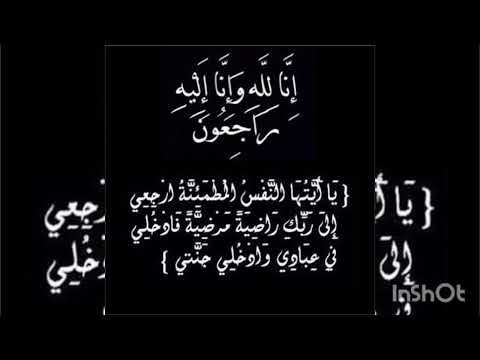 إِنَّا لِلَّهِ وَإِنَّا إِلَيْهِ
رَاجِعُونَ
{ يَا أَيَّتُهَا النَّفْسُ الْمُطْمَئِنَّةُ ارْجِعِي
إِلَى رَبِّكِ رَاضِيَةً مَرْضِيَّةً فَادْخُلِي
فِي عِبَادِي وَادْخُلِي جَنَّتِي }
InShOt